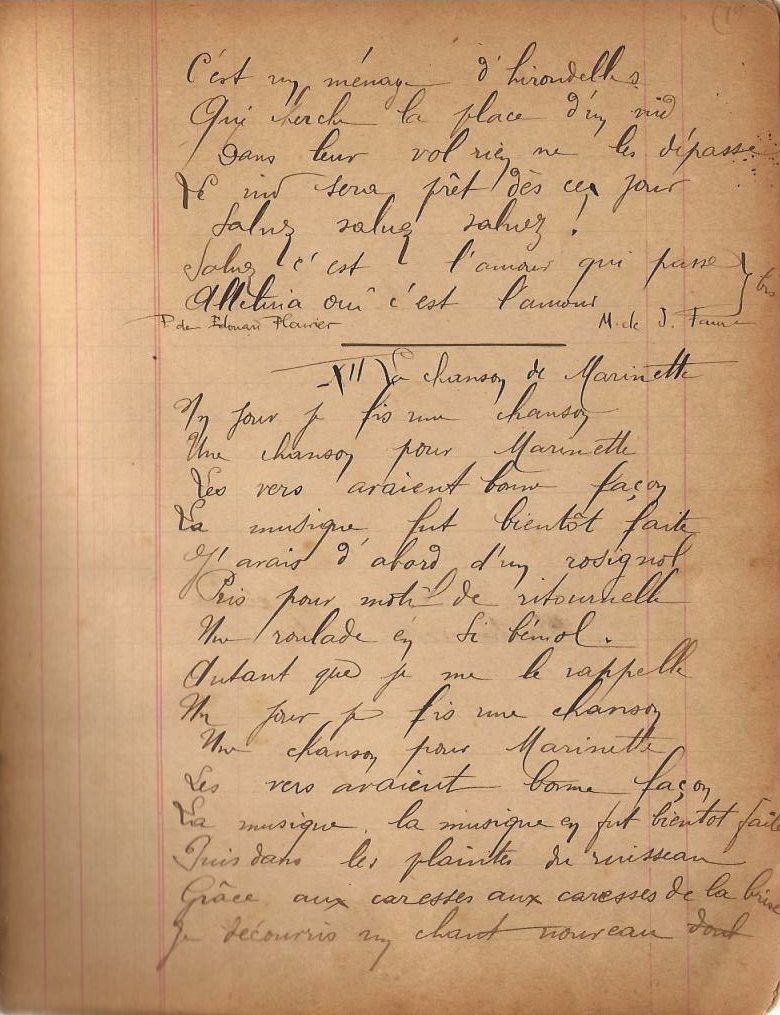 C'est un ménage d'hirondelles
Qui cherche la place d'un nid
Dans leur vol rien ne les dépasse
Le nid sera prêt dès ce jour
Saluez saluez saluez !
Saluez c'est l'amour qui passe
Alleluia oui c'est l'amour } bis
P de Edouard Plouvier M. de J. Faure
XII La chanson de Marinette
Un jour je fis une chanson
Une chanson pour Marinette
Les vers avaient bonne façon
La musique fut bientôt faite
J'avais d'abord d'un rosignol
Pris pour motif de ritournelle
Une roulade en Si bémol.
Autant que je me le rappelle
Un jour je fis une chanson
Une chanson pour Marinette
Les vers avaient bonne façon
La musique, la musique en fut bientot faite
Puis dans les plaintes du ruisseau
Grâce aux caresses aux caresses de la brise
Je découvris un chant nouveau dont